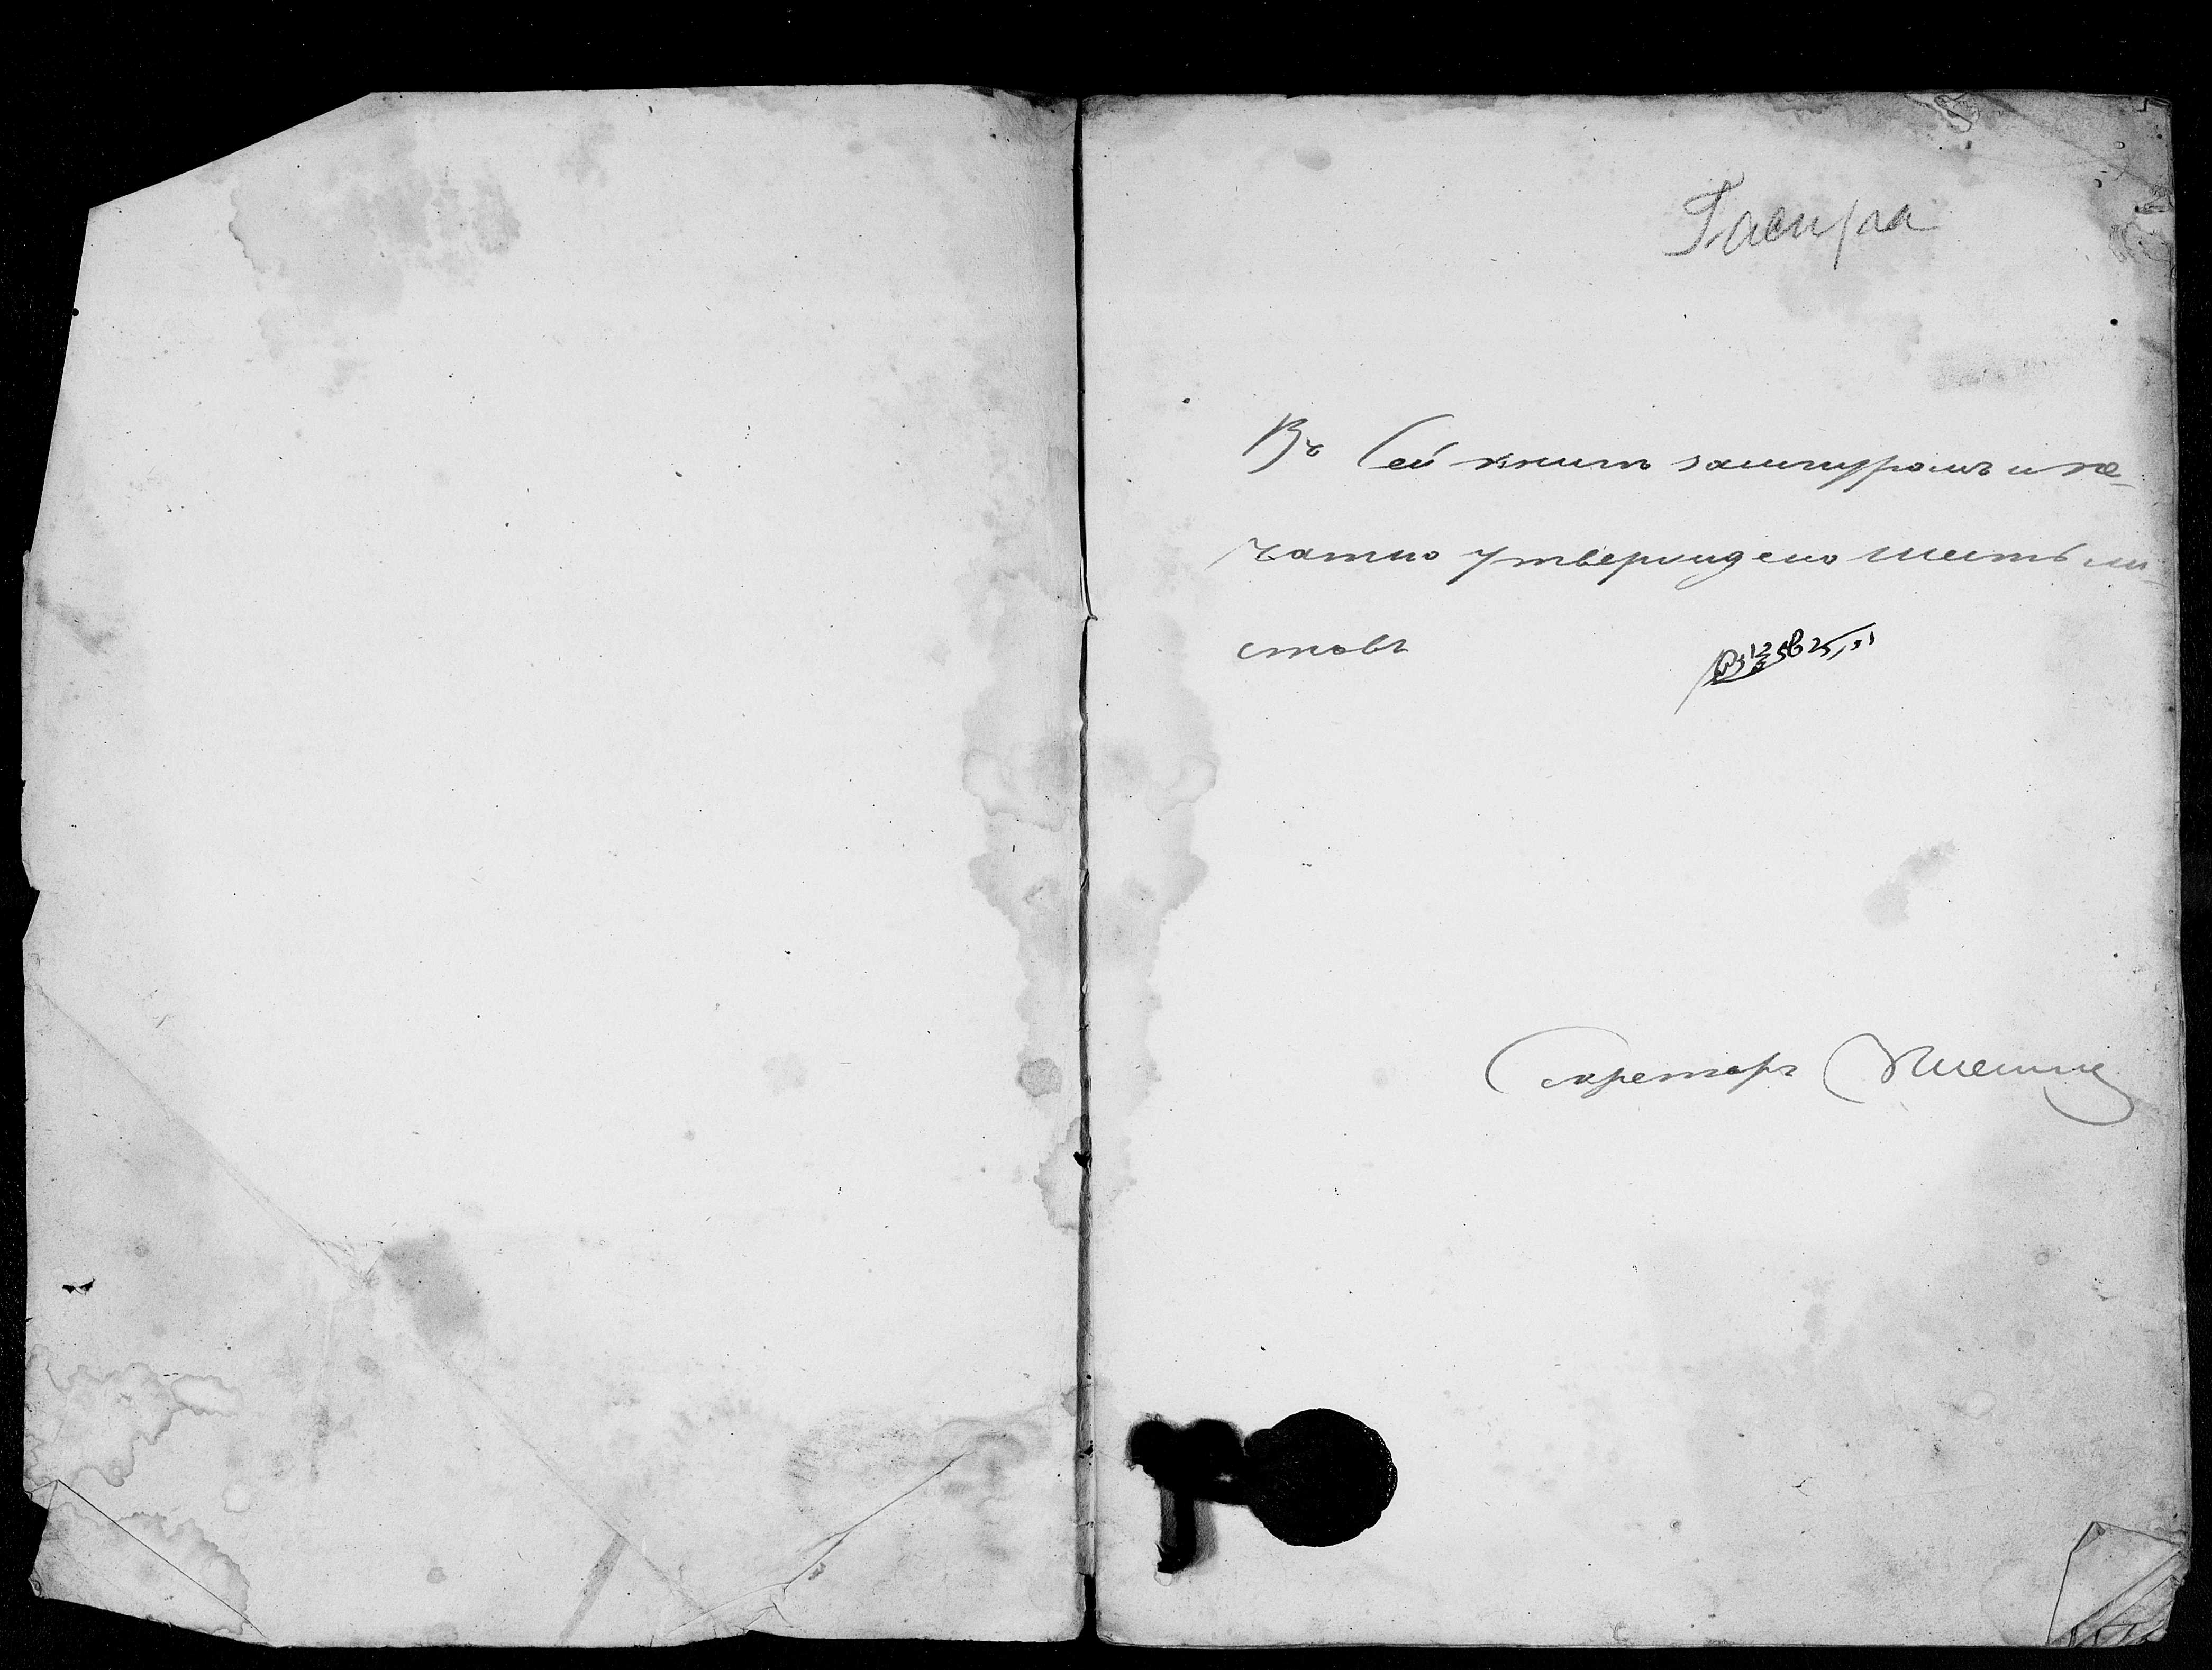 Гаспра
Въ Сей книгѣ зашнуромъ и пе-
чатью утверждено шесть ли-
стовъ
Секретарь